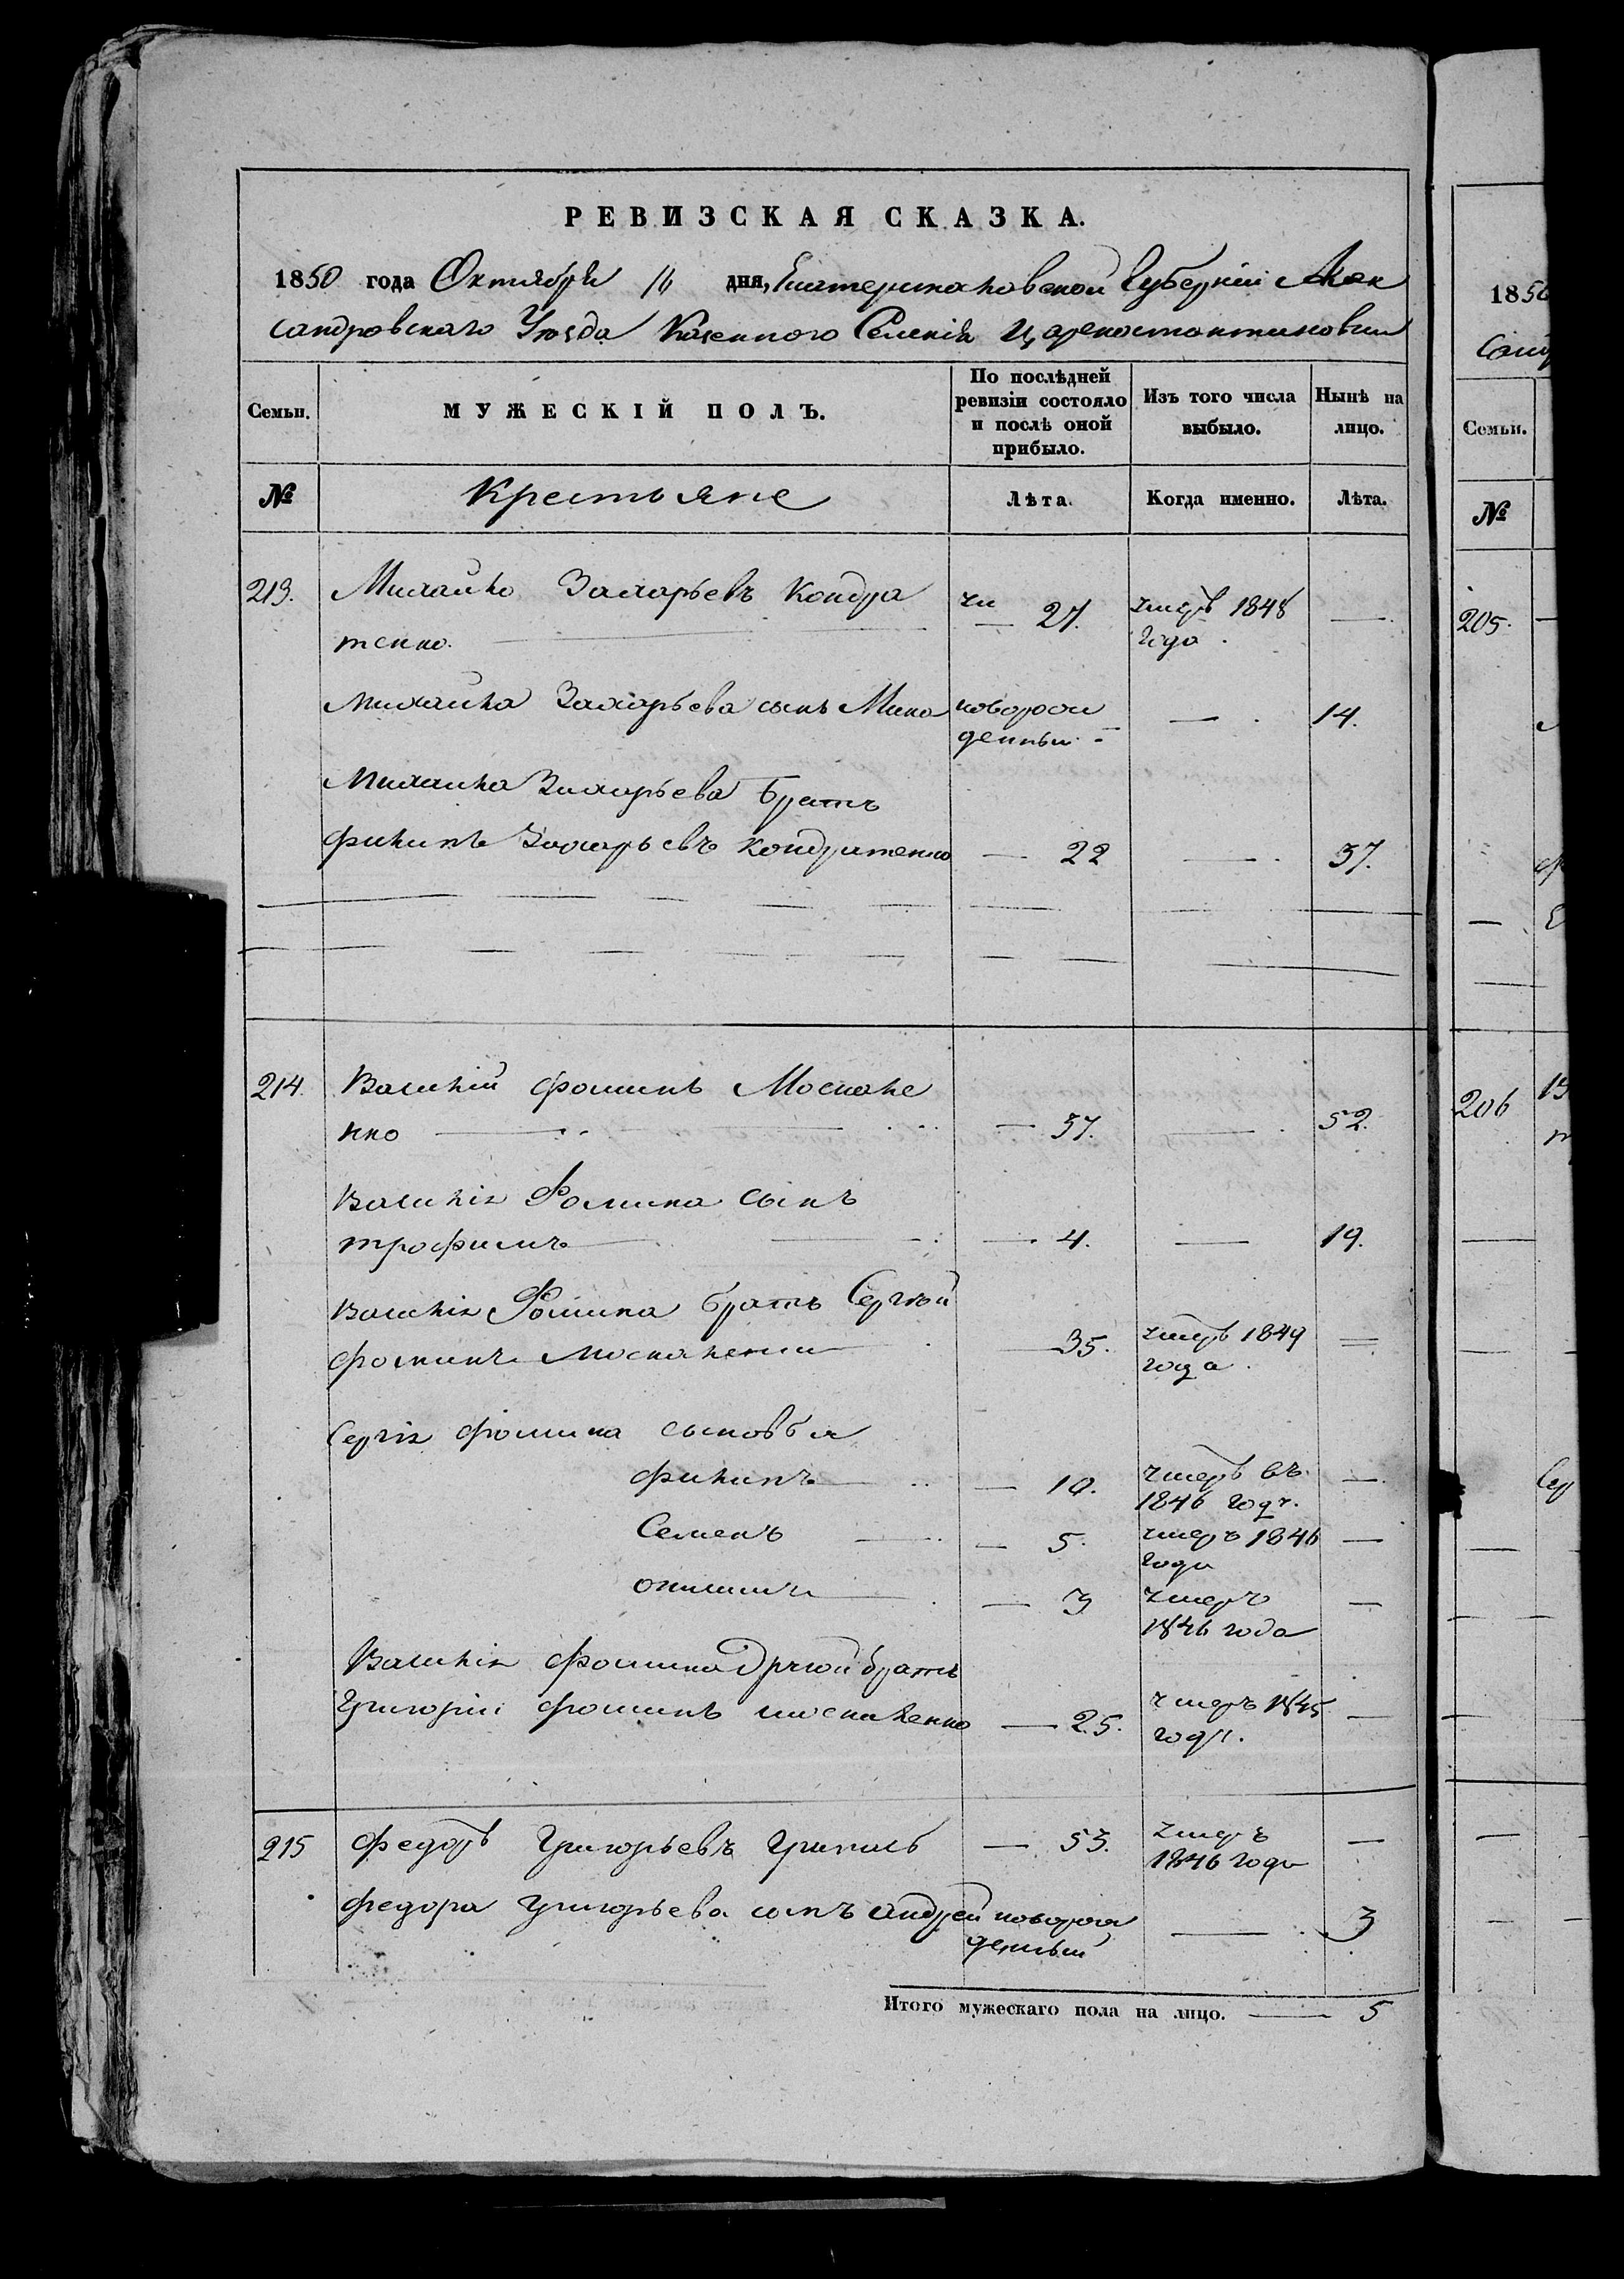 РЕВИЗСКАЯ СКАЗКА.
1850 года Октября 16 дня, Екатеринославской Губерніи Алек
сандровскаго Уѣзда Казенного Селенія Цареконстантиновки
Семьи.
МУЖЕСКІЙ ПОЛЪ.
По послѣдней ревизіи состояло и послѣ оной прибыло.
Изъ того числа выбыло.
Нынѣ на лицо.
№
Крестьяне
Лѣта.
Когда именно.
Лѣта.
213. Михайло Захарьевъ Кондра
тенко. — 27. умеръ 1848 года. —
Михайла Захарьева сынъ Мина новорож
денный — 14.
Михайла Захарьева братъ
Филипъ Захарьевъ Кондратенко — 22 — 37.
214. Василій Фоминъ Москале
нко — 37. — 52.
Василія Фомина сынъ
Трофимъ — 4. — 19.
Василія Фомина братъ Сергѣй
Фоминъ Москаленко — 35. умеръ 1849 года. —
Сергія Фомина сыновья
Филипъ — 10. умеръ въ 1846 году. —
Семенъ — 5. умеръ 1846 года —
— 3 умеръ 1846 года —
Василія Фомина другой братъ
Григорій Фоминъ Москаленко — 25. умеръ 1845 года. —
215 Федоръ Григорьевъ — 53. умеръ 1846 года —
Федора Григорьева сынъ Андрей новорож
денный — 3
Итого мужескаго пола на лицо. — 5
1850
Семьи.
№
205.
206